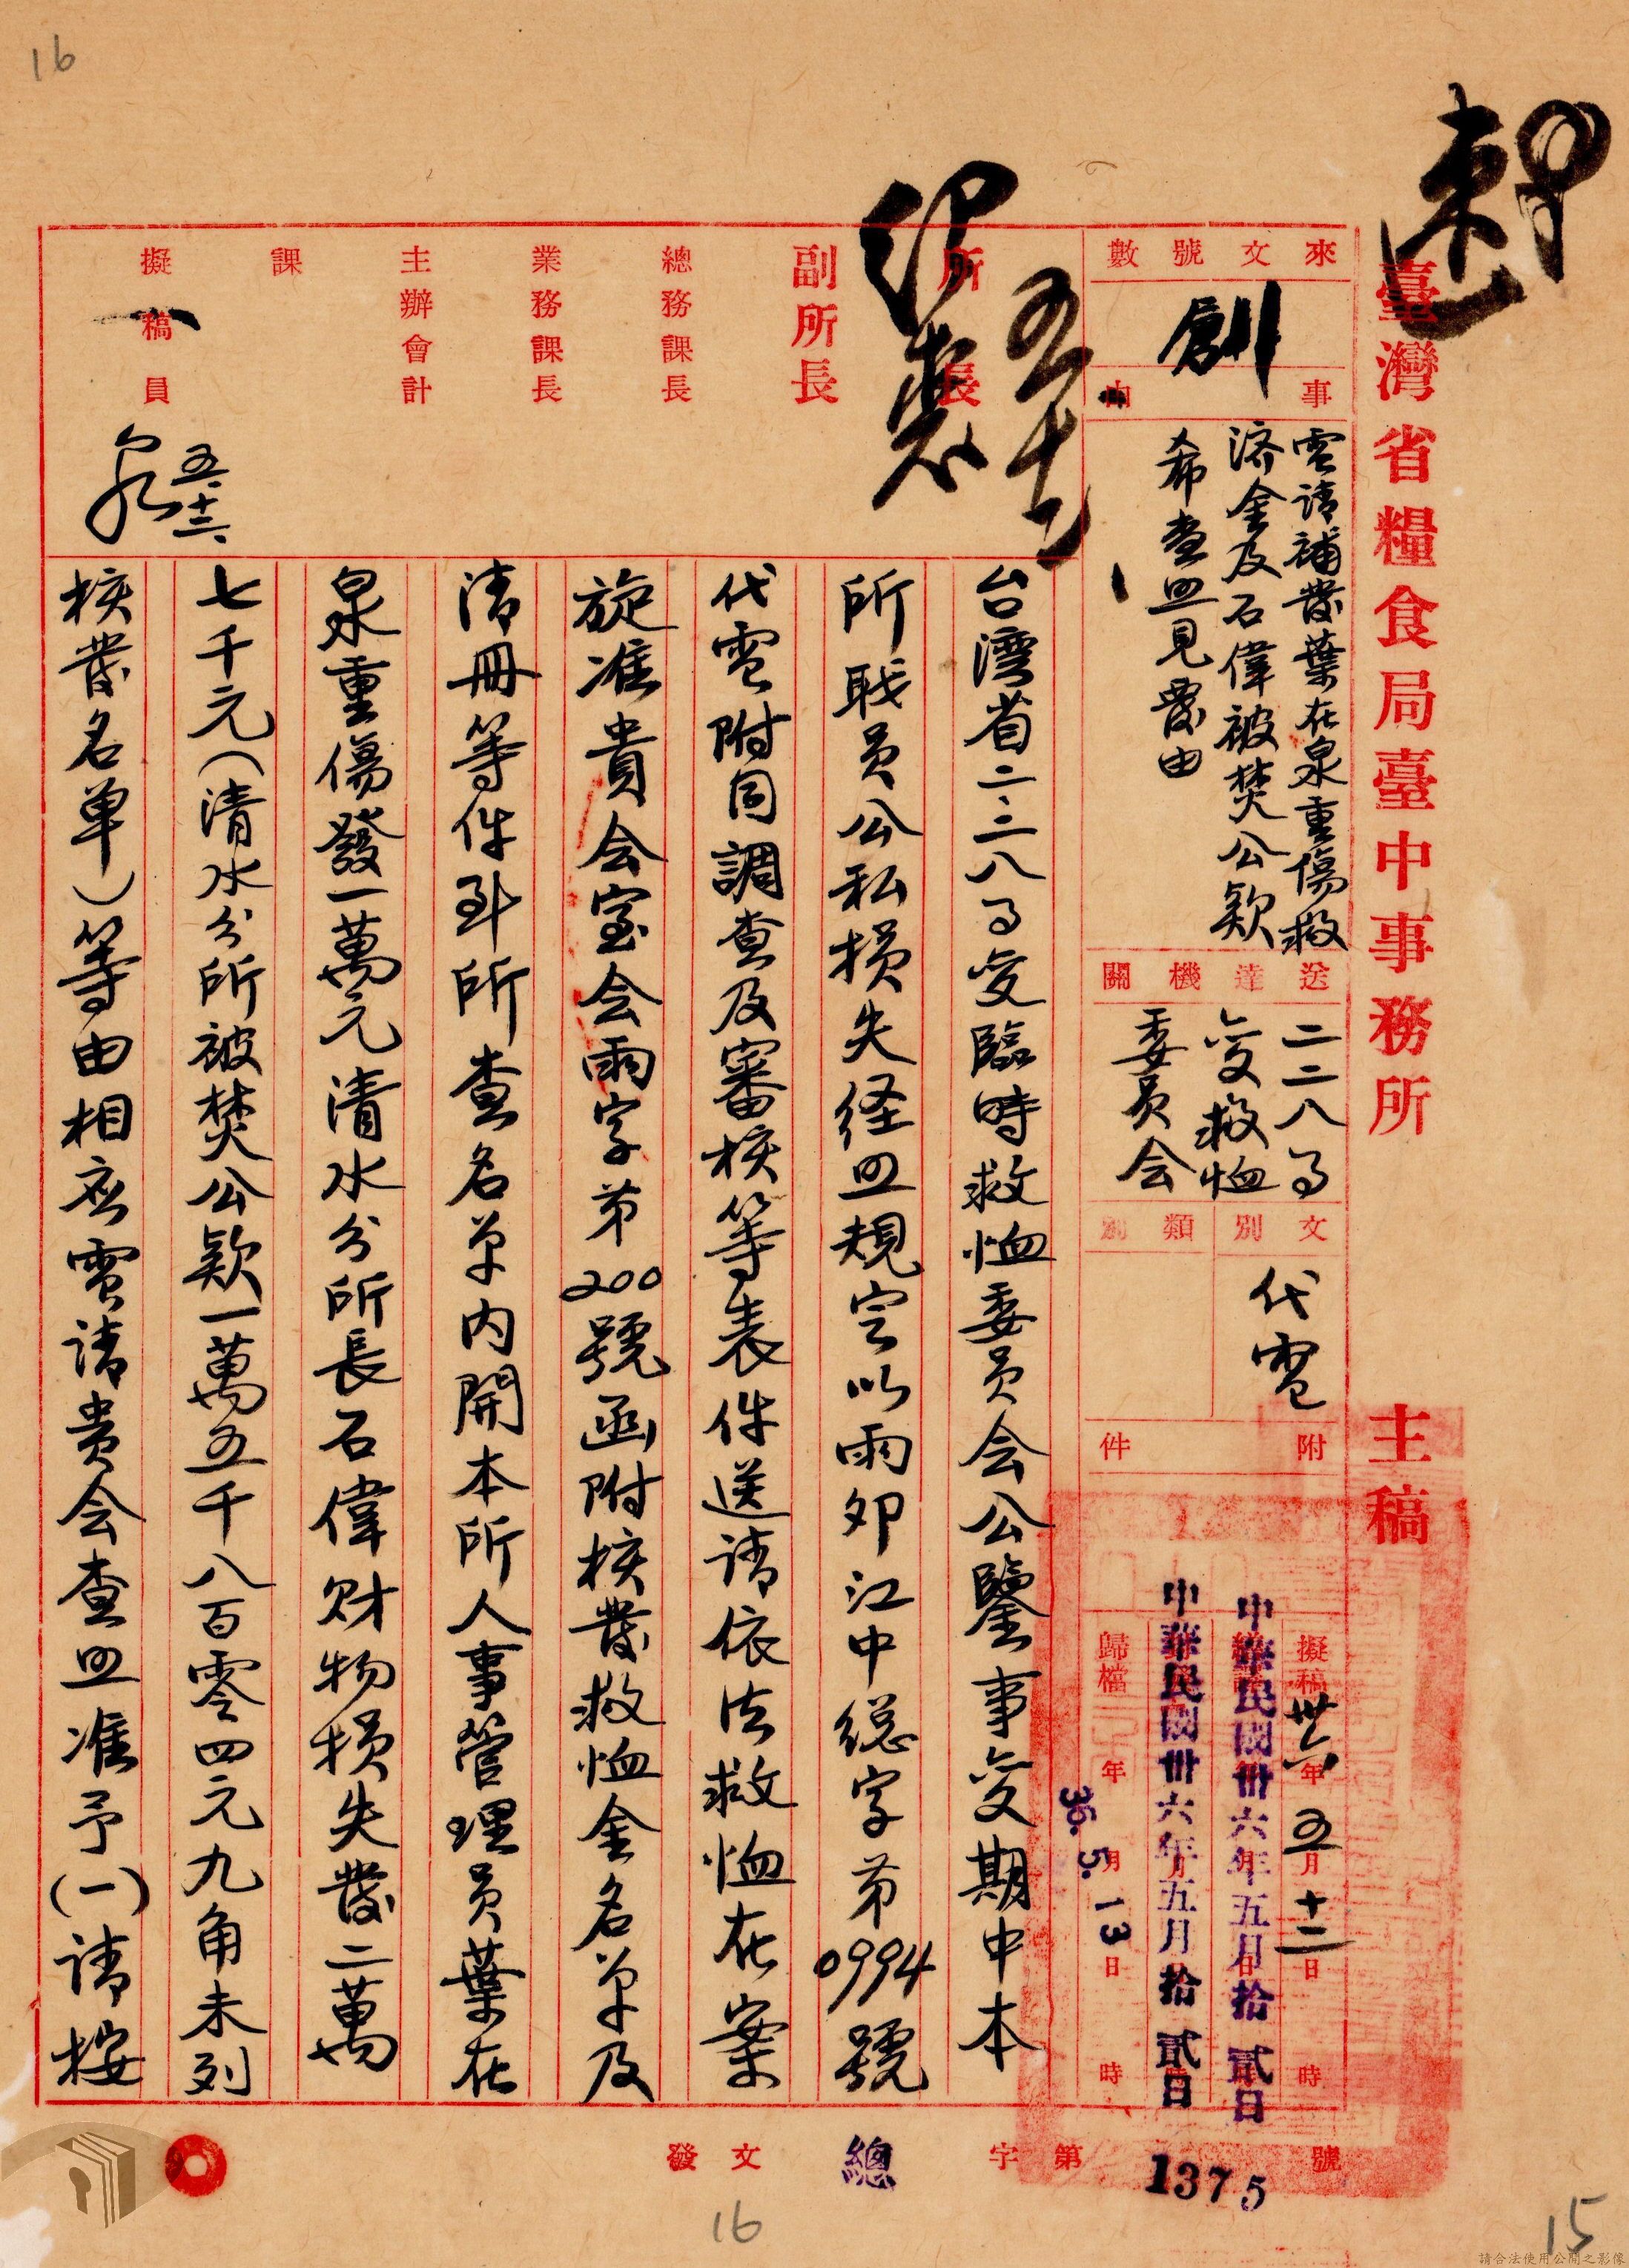 16
臺灣省糧食局臺中事務所 主稿
來文號數
創
事由
電請補發葉在泉重傷救
济金及石偉被焚公欵
希查四見發由
送達機關
二二八事
变救恤
委員会
文別
代電
類別
附件
擬稿 卅六年 五月 十二日 時
中華民國卅六年五月拾貳日
中華民國卅六年五月拾貳日
歸檔 年 月 日 時
36.5.13
所長
五十二
副所長
總務課長
業務課長
主辦會計
課
擬稿員
泉 五.十二.
台湾省二二八事变臨時救恤委員会公鑒事变期中本
所职員公私損失経照規定以雨卯江中総字第0994號
代電附同調查及審核等表件送請依法救恤在案
旋准貴会室会雨字第200號函附核發救恤金名单及
清冊等件到所查名单内開本所人事管理員葉在
泉重傷發一萬元清水分所長石偉财物損失發二萬
七千元(清水分所被焚公欵一萬五千八百零四元九角未列
核發名单)等由相应電請貴会查照准予(一)請按
發文 總字第1375號
16
15
請合法使用公開之影像